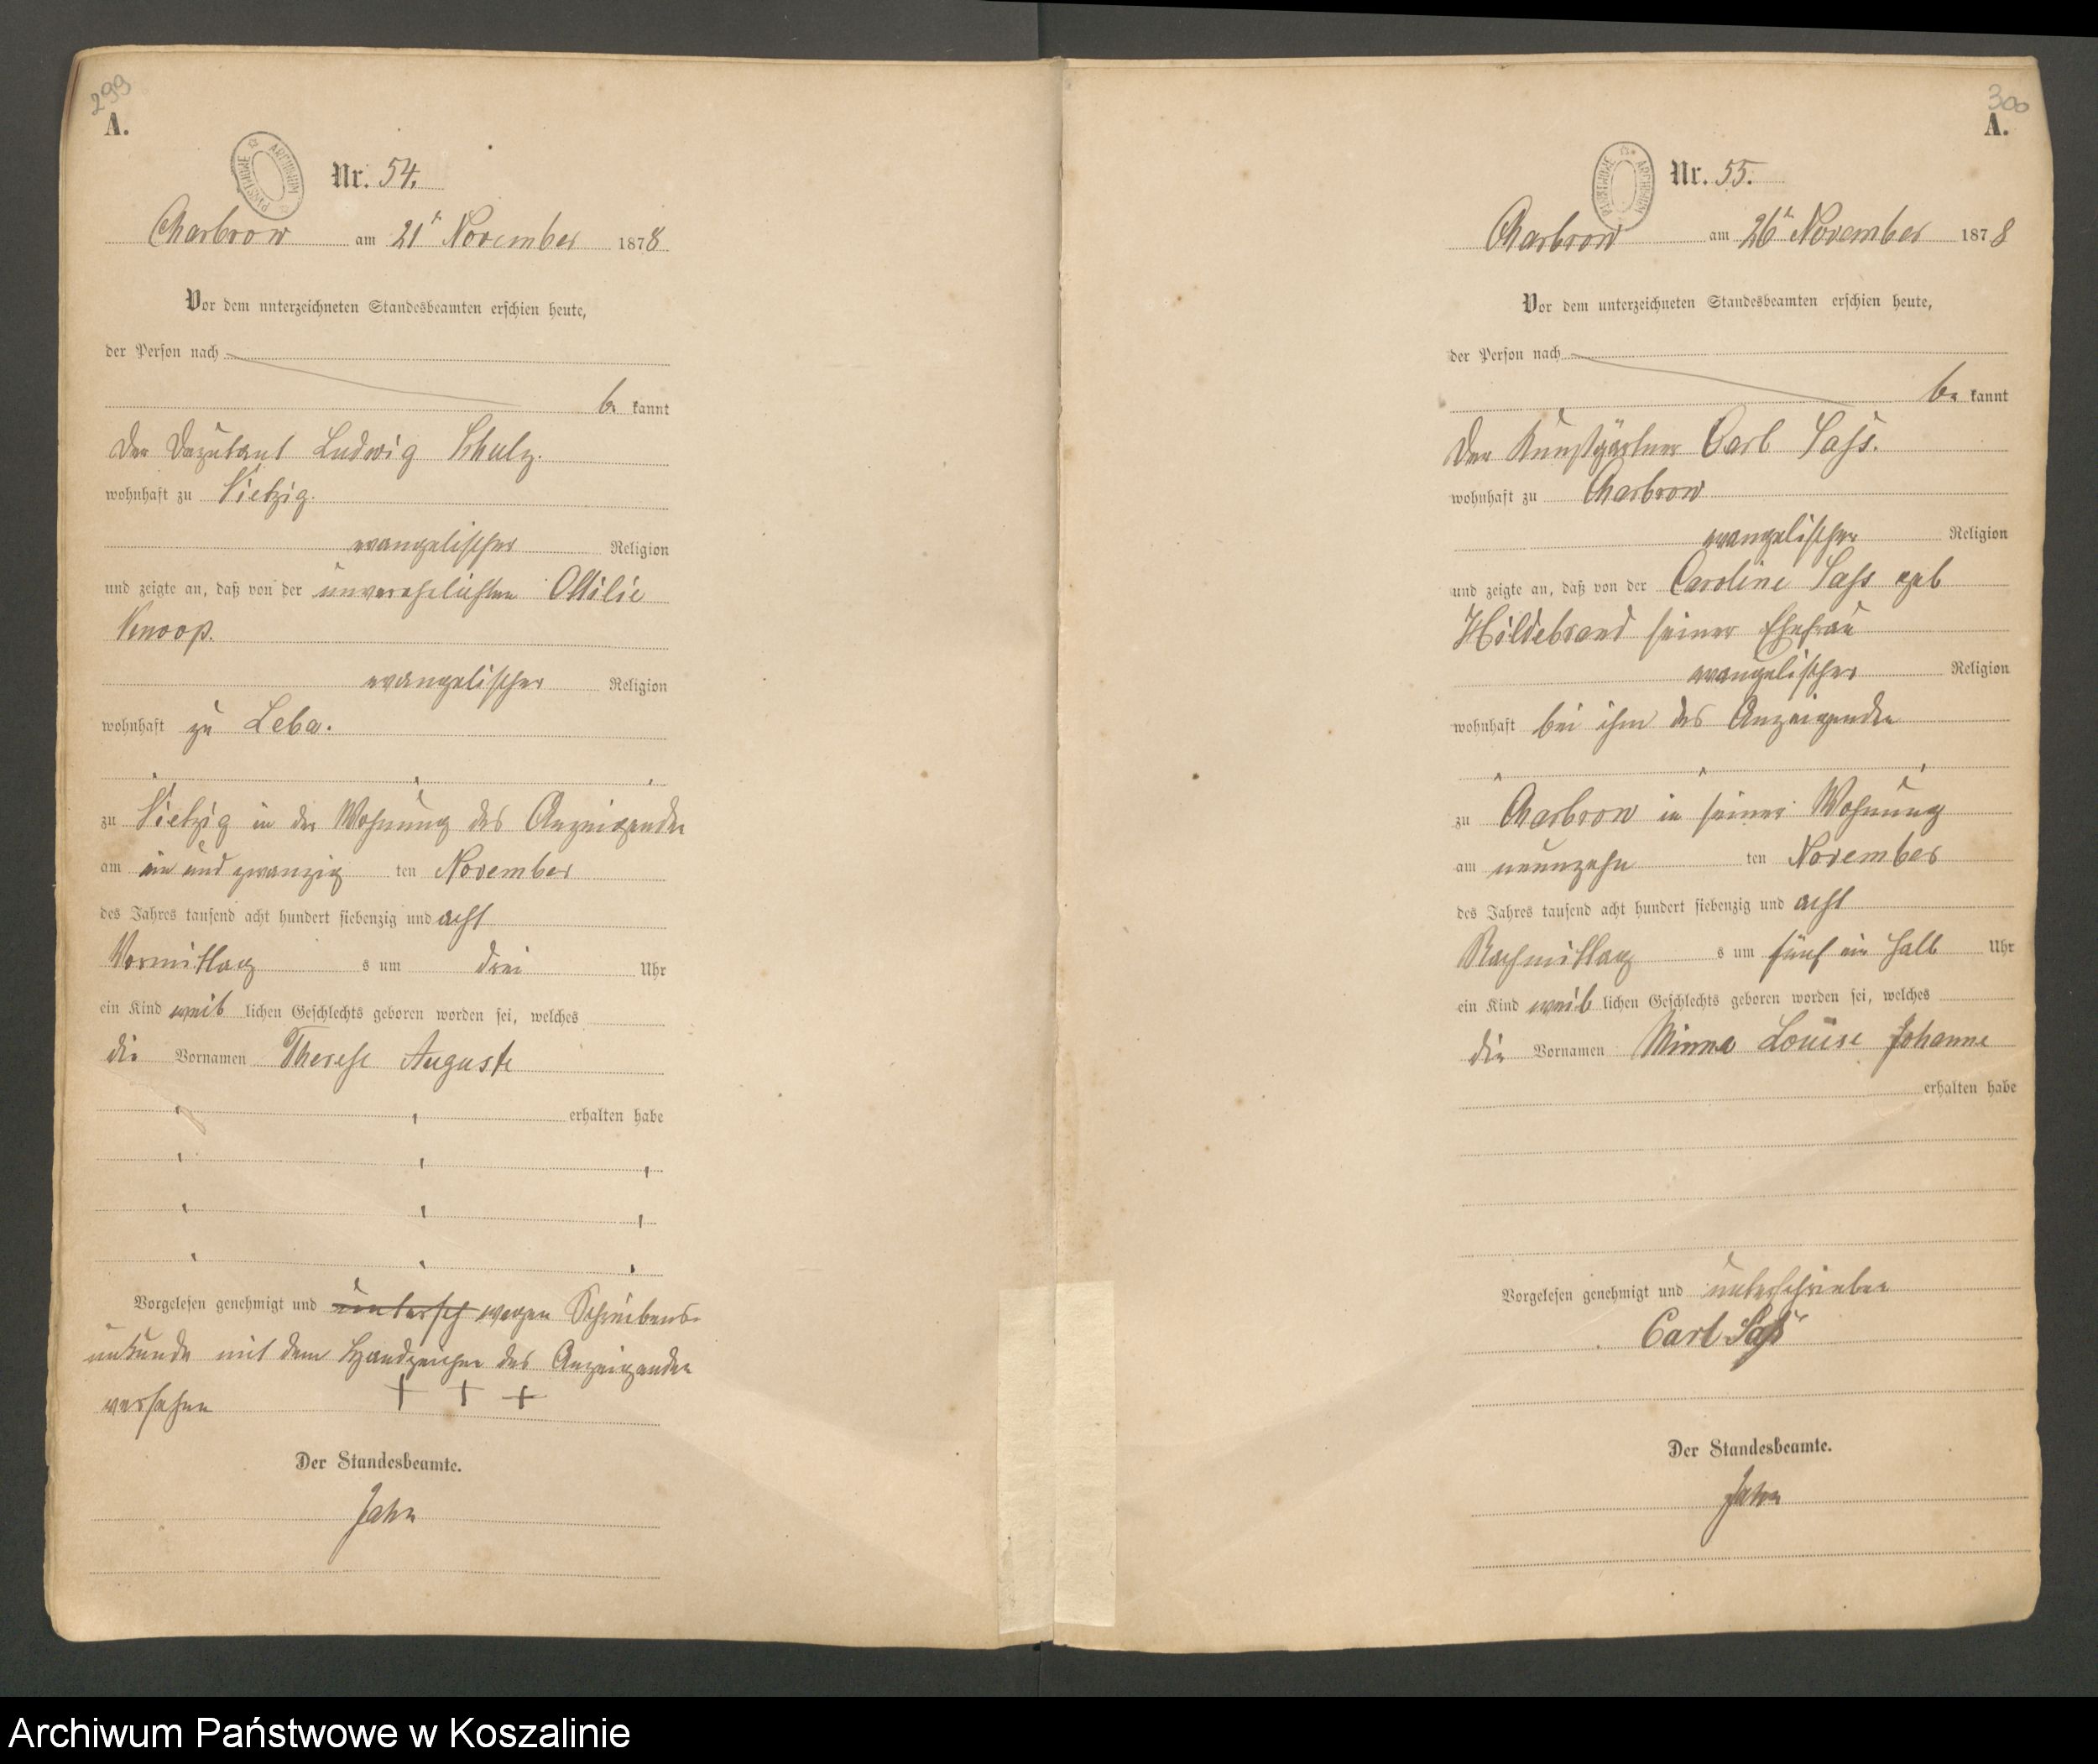 299
A.
ARCHIWUM PAŃSTWOWE
Nr. 54.
Charbrow am 21t November 1878
Vor dem unterzeichneten Standesbeamten erschien heute,
der Person nach
be kannt
Der Deputant Ludwig Schulz.
wohnhaft zu Vietzig.
evangelischer Religion
und zeigte an, daß von der unverehelichten Ottilie
Knoop.
evangelischer Religion
wohnhaft zu Leba.
zu Vietzig in der Wohnung des Anzeigenden
am ein und zwanzig ten November
des Jahres tausend acht hundert siebenzig und acht
Vormittag s um drei Uhr
ein Kind weib lichen Geschlechts geboren worden sei, welches
die Vornamen Therese Auguste
erhalten habe
Vorgelesen genehmigt und untersch wegen Schreibens-
unkunde mit dem Handzeichen des Anzeigenden
versehen + + +
Der Standesbeamte.
Jahn
300
A.
ARCHIWUM PAŃSTWOWE
Nr. 55.
Charbrow am 26t November 1878
Vor dem unterzeichneten Standesbeamten erschien heute,
der Person nach
be kannt
Der Kunstgärtner Carl Sass.
wohnhaft zu Charbrow
evangelischer Religion
und zeigte an, daß von der Caroline Sass geb
Hildebrand seiner Ehefrau
evangelischer Religion
wohnhaft bei ihm des Anzeigenden
zu Charbrow in seiner Wohnung
am neunzehn ten November
des Jahres tausend acht hundert siebenzig und acht
Nachmittag s um fünf ein halb Uhr
ein Kind weib lichen Geschlechts geboren worden sei, welches
die Vornamen Minna Louise Johanne
erhalten habe
Vorgelesen genehmigt und unterschrieben
Carl Sass
Der Standesbeamte.
Jahn
Archiwum Państwowe w Koszalinie